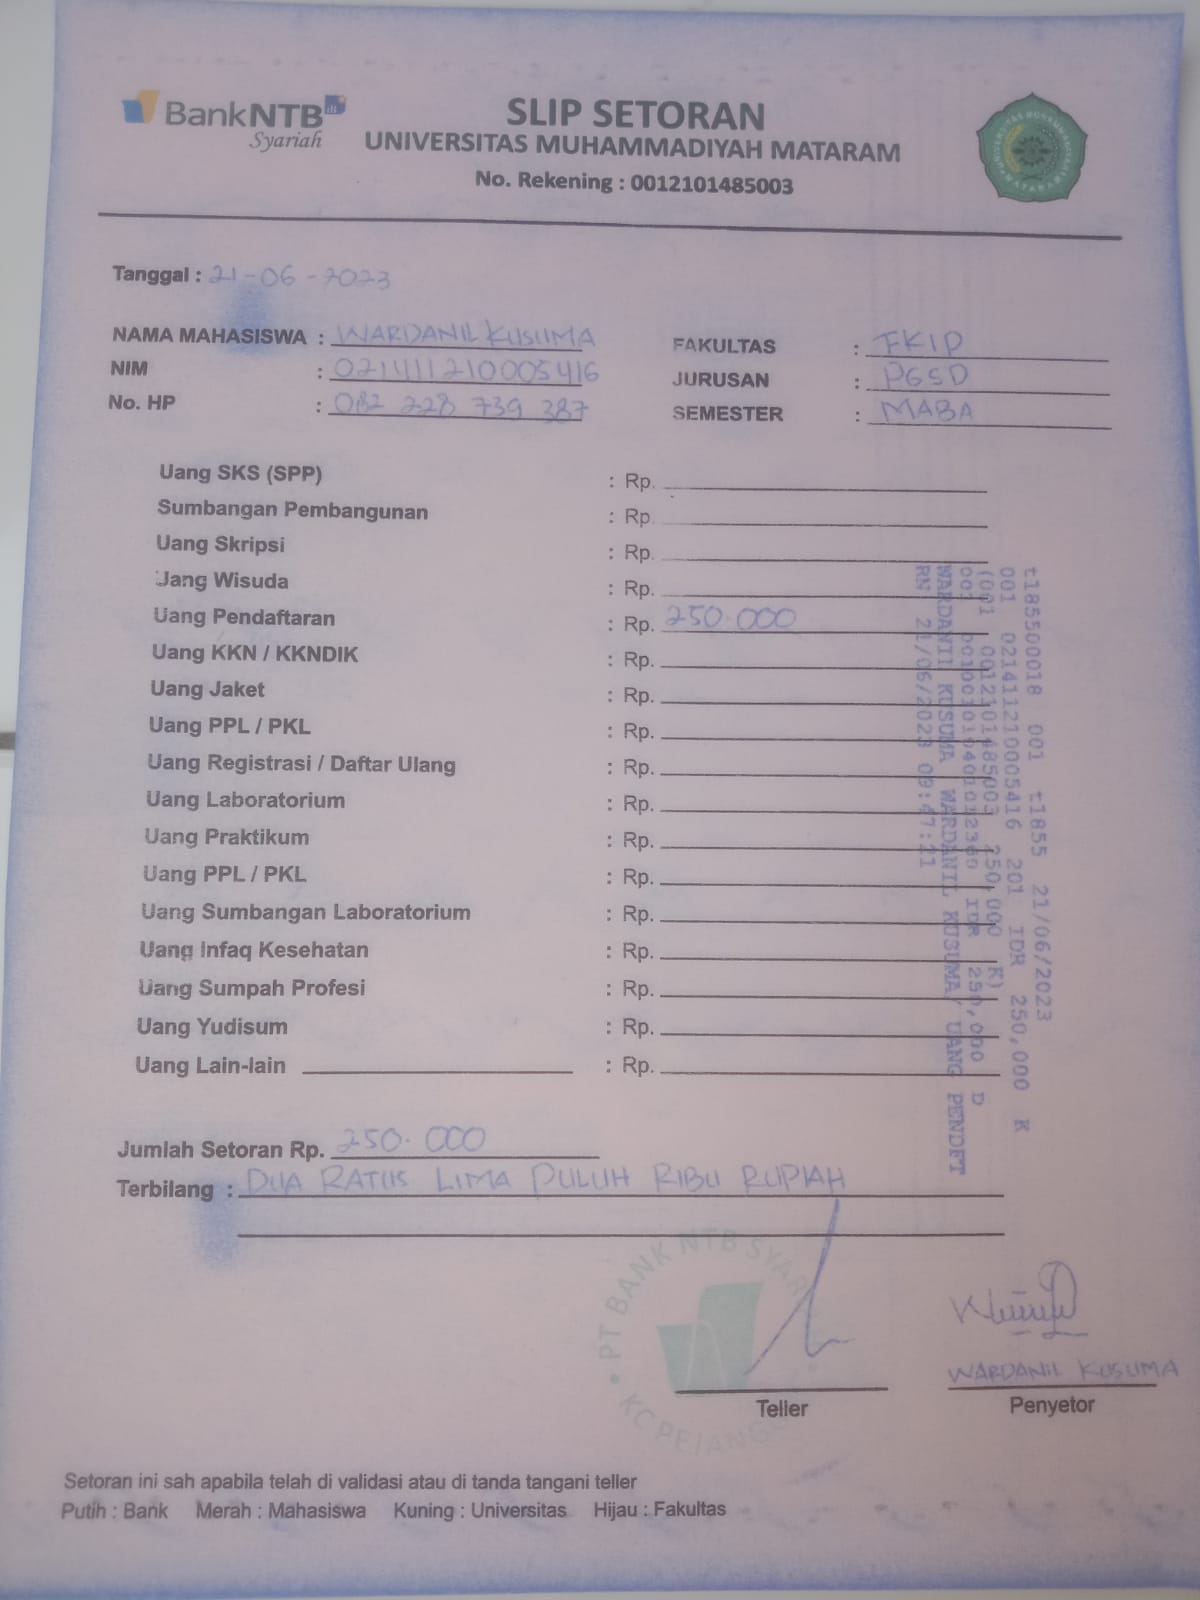 BankNTB
Syariah
SLIP SETORAN
UNIVERSITAS MUHAMMADIYAH MATARAM
No. Rekening : 0012101485003
Tanggal : 21-06-2023
NAMA MAHASISWA : WARDANIL KUSUMA
NIM : 021411210005416
No. HP : 082 228 739 387
FAKULTAS : FKIP
JURUSAN : PGSD
SEMESTER : MABA
Uang SKS (SPP) : Rp.
Sumbangan Pembangunan : Rp.
Uang Skripsi : Rp.
Uang Wisuda : Rp.
Uang Pendaftaran : Rp. 250.000
Uang KKN / KKNDIK : Rp.
Uang Jaket : Rp.
Uang PPL / PKL : Rp.
Uang Registrasi / Daftar Ulang : Rp.
Uang Laboratorium : Rp.
Uang Praktikum : Rp.
Uang PPL / PKL : Rp.
Uang Sumbangan Laboratorium : Rp.
Uang Infaq Kesehatan : Rp.
Uang Sumpah Profesi : Rp.
Uang Yudisum : Rp.
Uang Lain-lain : Rp.
t185500018 001 t1855 21/06/2023
001 021411210005416 201 IDR 250,000 K
(001 0012101485003 250,000 K)
001 IDR 250,000 D
WARDANIL KUSUMA WARDANIL KUSUMA/ UANG PENDFT
RN 21/06/2023 09:47:21
Jumlah Setoran Rp. 250.000
Terbilang : DUA RATUS LIMA PULUH RIBU RUPIAH
PT BANK NTB SYAR
KC PEJANGG
WARDANIL KUSUMA
Teller
Penyetor
Setoran ini sah apabila telah di validasi atau di tanda tangani teller
Putih : Bank Merah : Mahasiswa Kuning : Universitas Hijau : Fakultas